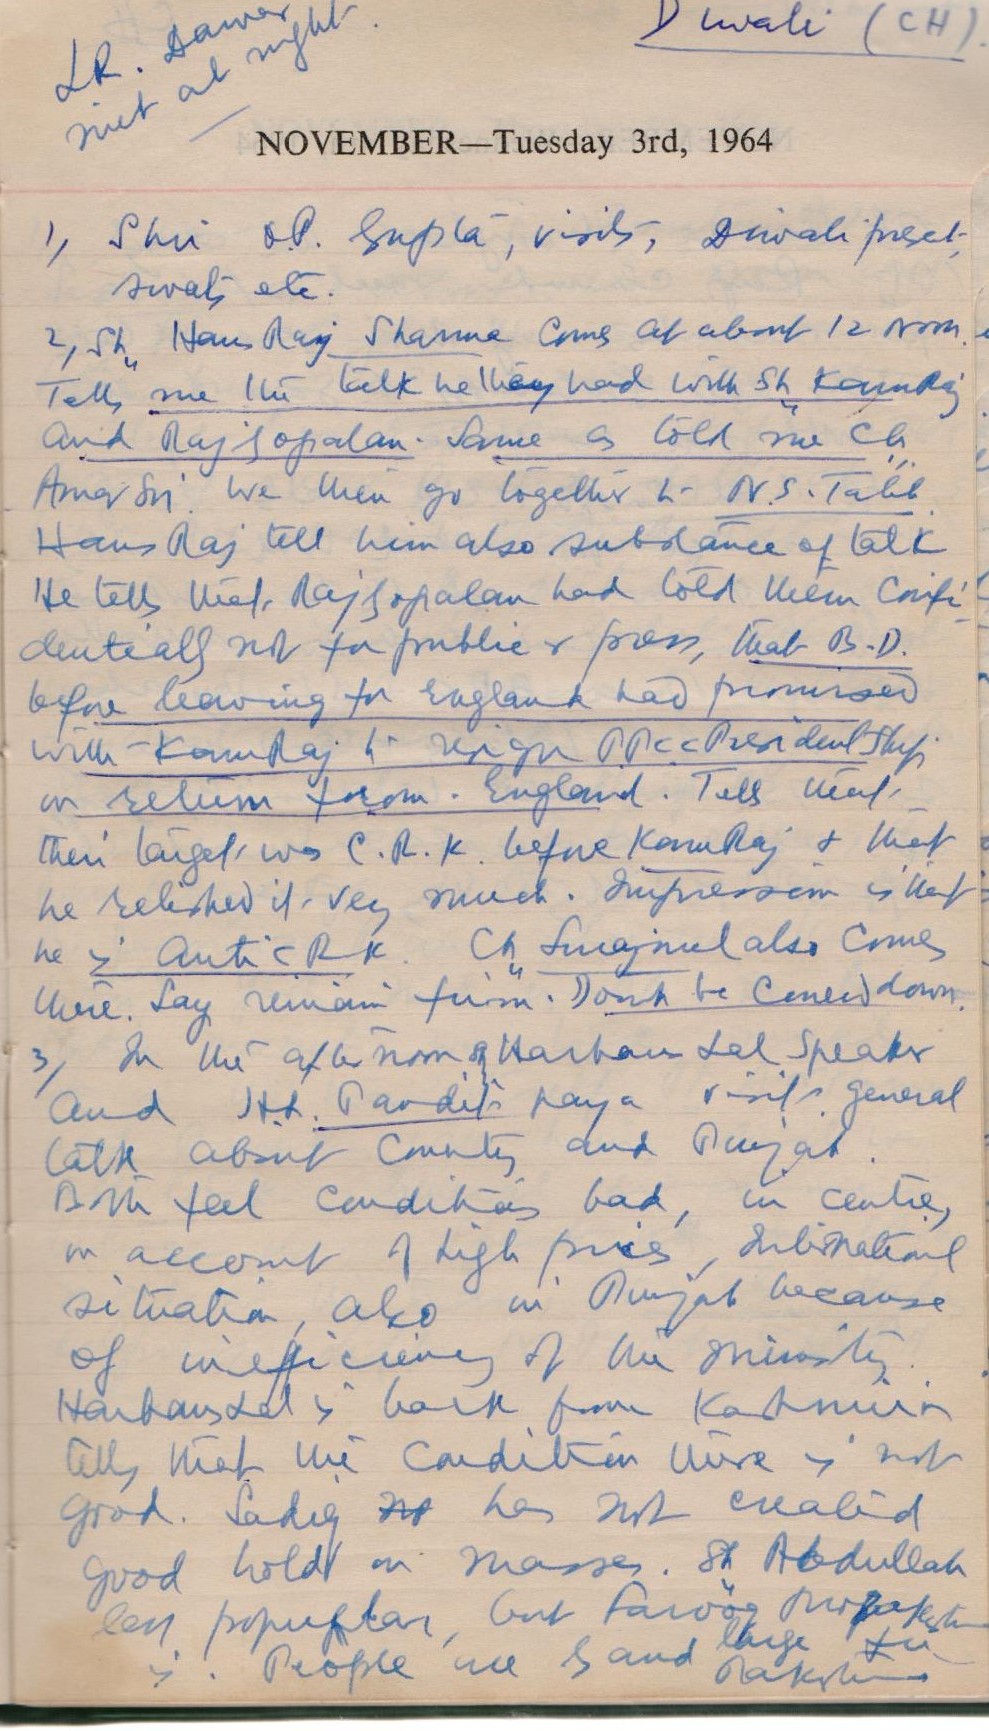 Diwali (CH).
L.R. Dawar
met at night.
NOVEMBER—Tuesday 3rd, 1964
1, Shri O.P. Gupta, visits, Diwali preset,
swats etc.
2, Sh. Hans Raj Sharma Comes at about 12 Noon.
Tells me the talk he they had with Sh KamRaj
and Rajgopalan. Same as told me Ch
Amar We then go together to N.S. Talib
Hans Raj tell him also substance of talk
He tells that, Rajgopalan had told them Confi-
dentially not for public & press, that B.D.
before leaving for England had promised
with KamRaj to resign PPCC Presidentship
on return from England. Tells that,
their target was C.R.K. before KamRaj & that
he relished it very much. Impression is that
he is anti CRK. Ch Surajmal also Comes
there. Say remain firm. Dont be Cowed down.
3, In the afternoon Harbans Lal Speaker
and Pandit pay a visit, general
talk about Country and Punjab.
Both feel conditions bad, in centre,
on account of high prices, International
situation, also in Punjab because
of inefficiency of the Ministry.
HarbansLal is back from Kashmir
tells that the Condition there is not
good. Sadiq has not created
good hold on masses. Sh Abdullah
less popular, but Farooq
is. People are by and large for
Pakistan